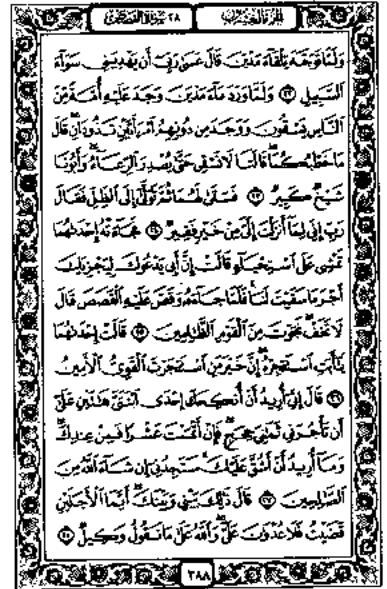 الجزء العشرون ٢٨ سورة القصص
وَلَمَّا تَوَجَّهَ تِلْقَآءَ مَدْيَنَ قَالَ عَسَىٰ رَبِّىٓ أَن يَهْدِيَنِى سَوَآءَ
ٱلسَّبِيلِ ﴿٢٢﴾ وَلَمَّا وَرَدَ مَآءَ مَدْيَنَ وَجَدَ عَلَيْهِ أُمَّةً مِّنَ
ٱلنَّاسِ يَسْقُونَ وَوَجَدَ مِن دُونِهِمُ ٱمْرَأَتَيْنِ تَذُودَانِ قَالَ
مَا خَطْبُكُمَا قَالَتَا لَا نَسْقِى حَتَّىٰ يُصْدِرَ ٱلرِّعَآءُ وَأَبُونَا
شَيْخٌ كَبِيرٌ ﴿٢٣﴾ فَسَقَىٰ لَهُمَا ثُمَّ تَوَلَّىٰٓ إِلَى ٱلظِّلِّ فَقَالَ
رَبِّ إِنِّى لِمَآ أَنزَلْتَ إِلَىَّ مِنْ خَيْرٍ فَقِيرٌ ﴿٢٤﴾ فَجَآءَتْهُ إِحْدَىٰهُمَا
تَمْشِى عَلَى ٱسْتِحْيَآءٍ قَالَتْ إِنَّ أَبِى يَدْعُوكَ لِيَجْزِيَكَ
أَجْرَ مَا سَقَيْتَ لَنَا فَلَمَّا جَآءَهُۥ وَقَصَّ عَلَيْهِ ٱلْقَصَصَ قَالَ
لَا تَخَفْ نَجَوْتَ مِنَ ٱلْقَوْمِ ٱلظَّٰلِمِينَ ﴿٢٥﴾ قَالَتْ إِحْدَىٰهُمَا
يَٰٓأَبَتِ ٱسْتَـْٔجِرْهُ إِنَّ خَيْرَ مَنِ ٱسْتَـْٔجَرْتَ ٱلْقَوِىُّ ٱلْأَمِينُ
﴿٢٦﴾ قَالَ إِنِّىٓ أُرِيدُ أَنْ أُنكِحَكَ إِحْدَى ٱبْنَتَىَّ هَٰتَيْنِ عَلَىٰٓ
أَن تَأْجُرَنِى ثَمَٰنِىَ حِجَجٍ فَإِنْ أَتْمَمْتَ عَشْرًا فَمِنْ عِندِكَ
وَمَآ أُرِيدُ أَنْ أَشُقَّ عَلَيْكَ سَتَجِدُنِىٓ إِن شَآءَ ٱللَّهُ مِنَ
ٱلصَّٰلِحِينَ ﴿٢٧﴾ قَالَ ذَٰلِكَ بَيْنِى وَبَيْنَكَ أَيَّمَا ٱلْأَجَلَيْنِ
قَضَيْتُ فَلَا عُدْوَٰنَ عَلَىَّ وَٱللَّهُ عَلَىٰ مَا نَقُولُ وَكِيلٌ ﴿٢٨﴾
٣٨٨